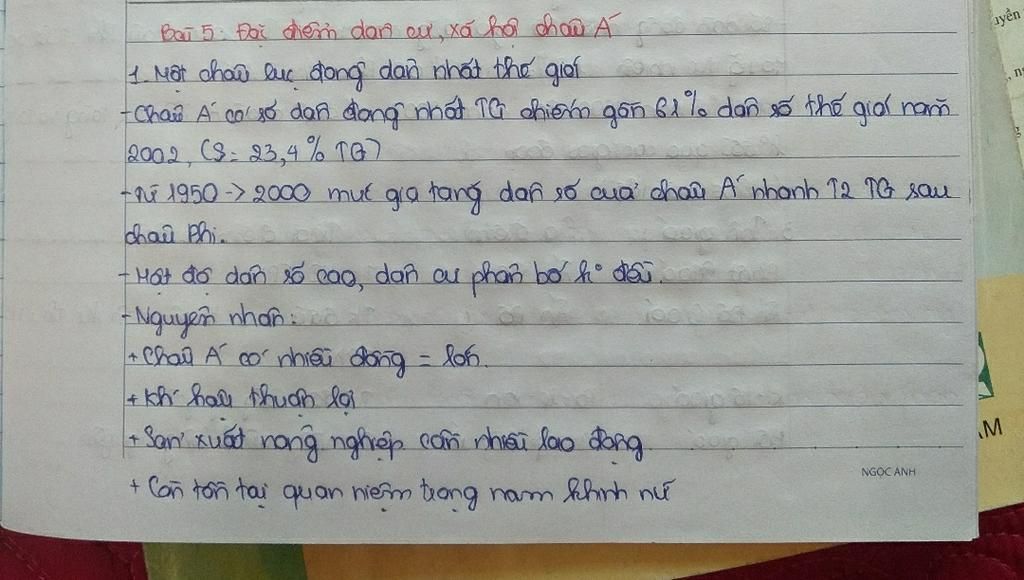 Bài 5: Đặc điểm dân cư, xã hội châu Á
1. Một châu lục đông dân nhất thế giới
- Châu Á có số dân đông nhất TG chiếm gần 61% dân số thế giới năm
2002, (S = 23,4% TG)
- Từ 1950 -> 2000 mức gia tăng dân số của châu Á nhanh T2 TG sau
châu Phi.
- Mật độ dân số cao, dân cư phân bố k° đều.
- Nguyên nhân:
+ Châu Á có nhiều đồng = lớn.
+ Khí hậu thuận lợi
+ Sản xuất nông nghiệp cần nhiều lao động
+ Còn tồn tại quan niệm trọng nam khinh nữ
NGỌC ANH